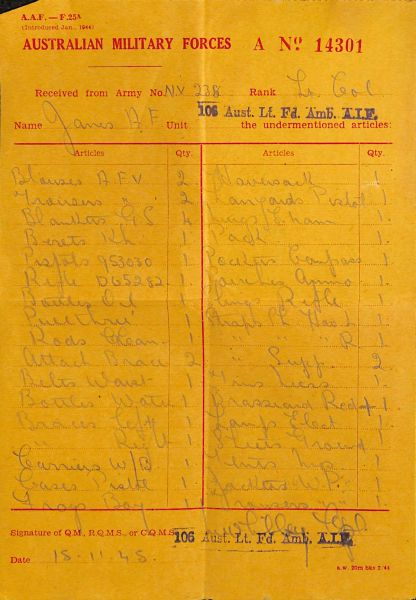 A.A.F. — F.25A
(Introduced Jan., 1944)
AUSTRALIAN MILITARY FORCES A No 14301
Received from Army No. NX 238 Rank Lt Col
Name James A F Unit 106 Aust. Lt. Fd. Amb. A.I.F. the undermentioned articles:
Articles Qty. Articles Qty.
Blouses A F V 2 Haversack 1
Trousers " 2 Lanyards Pistol 1
Blankets G S 4 Mugs 1
Berets Kh 1 Pack 1
Pistols 953030 1 Pockets Compass 1
Rifle D65282 1 Pouches Ammo 1
Bottles Oil 1 Slings Rifle 1
Pullthru 1 Straps Sh Hav L 1
Rods Clean 1 " " " R 1
Attach Brace 2 " Supp 2
Belts Waist 1 Tins Mess 1
Bottles Water 1 Brassard Red + 1
Braces Left 1 Lamps Elect 1
" Right 1 Sheets Ground 1
Carriers W/B 1 1
Cases Pistol 1 Jackets W.P. 1
Frog Bay 1 Trousers " 1
Signature of Q.M., R.Q.M.S., or C.Q.M.S.
106 Aust. Lt. Fd. Amb. A.I.F.
Date 15.11.45
A.W. 20m bks 2/44